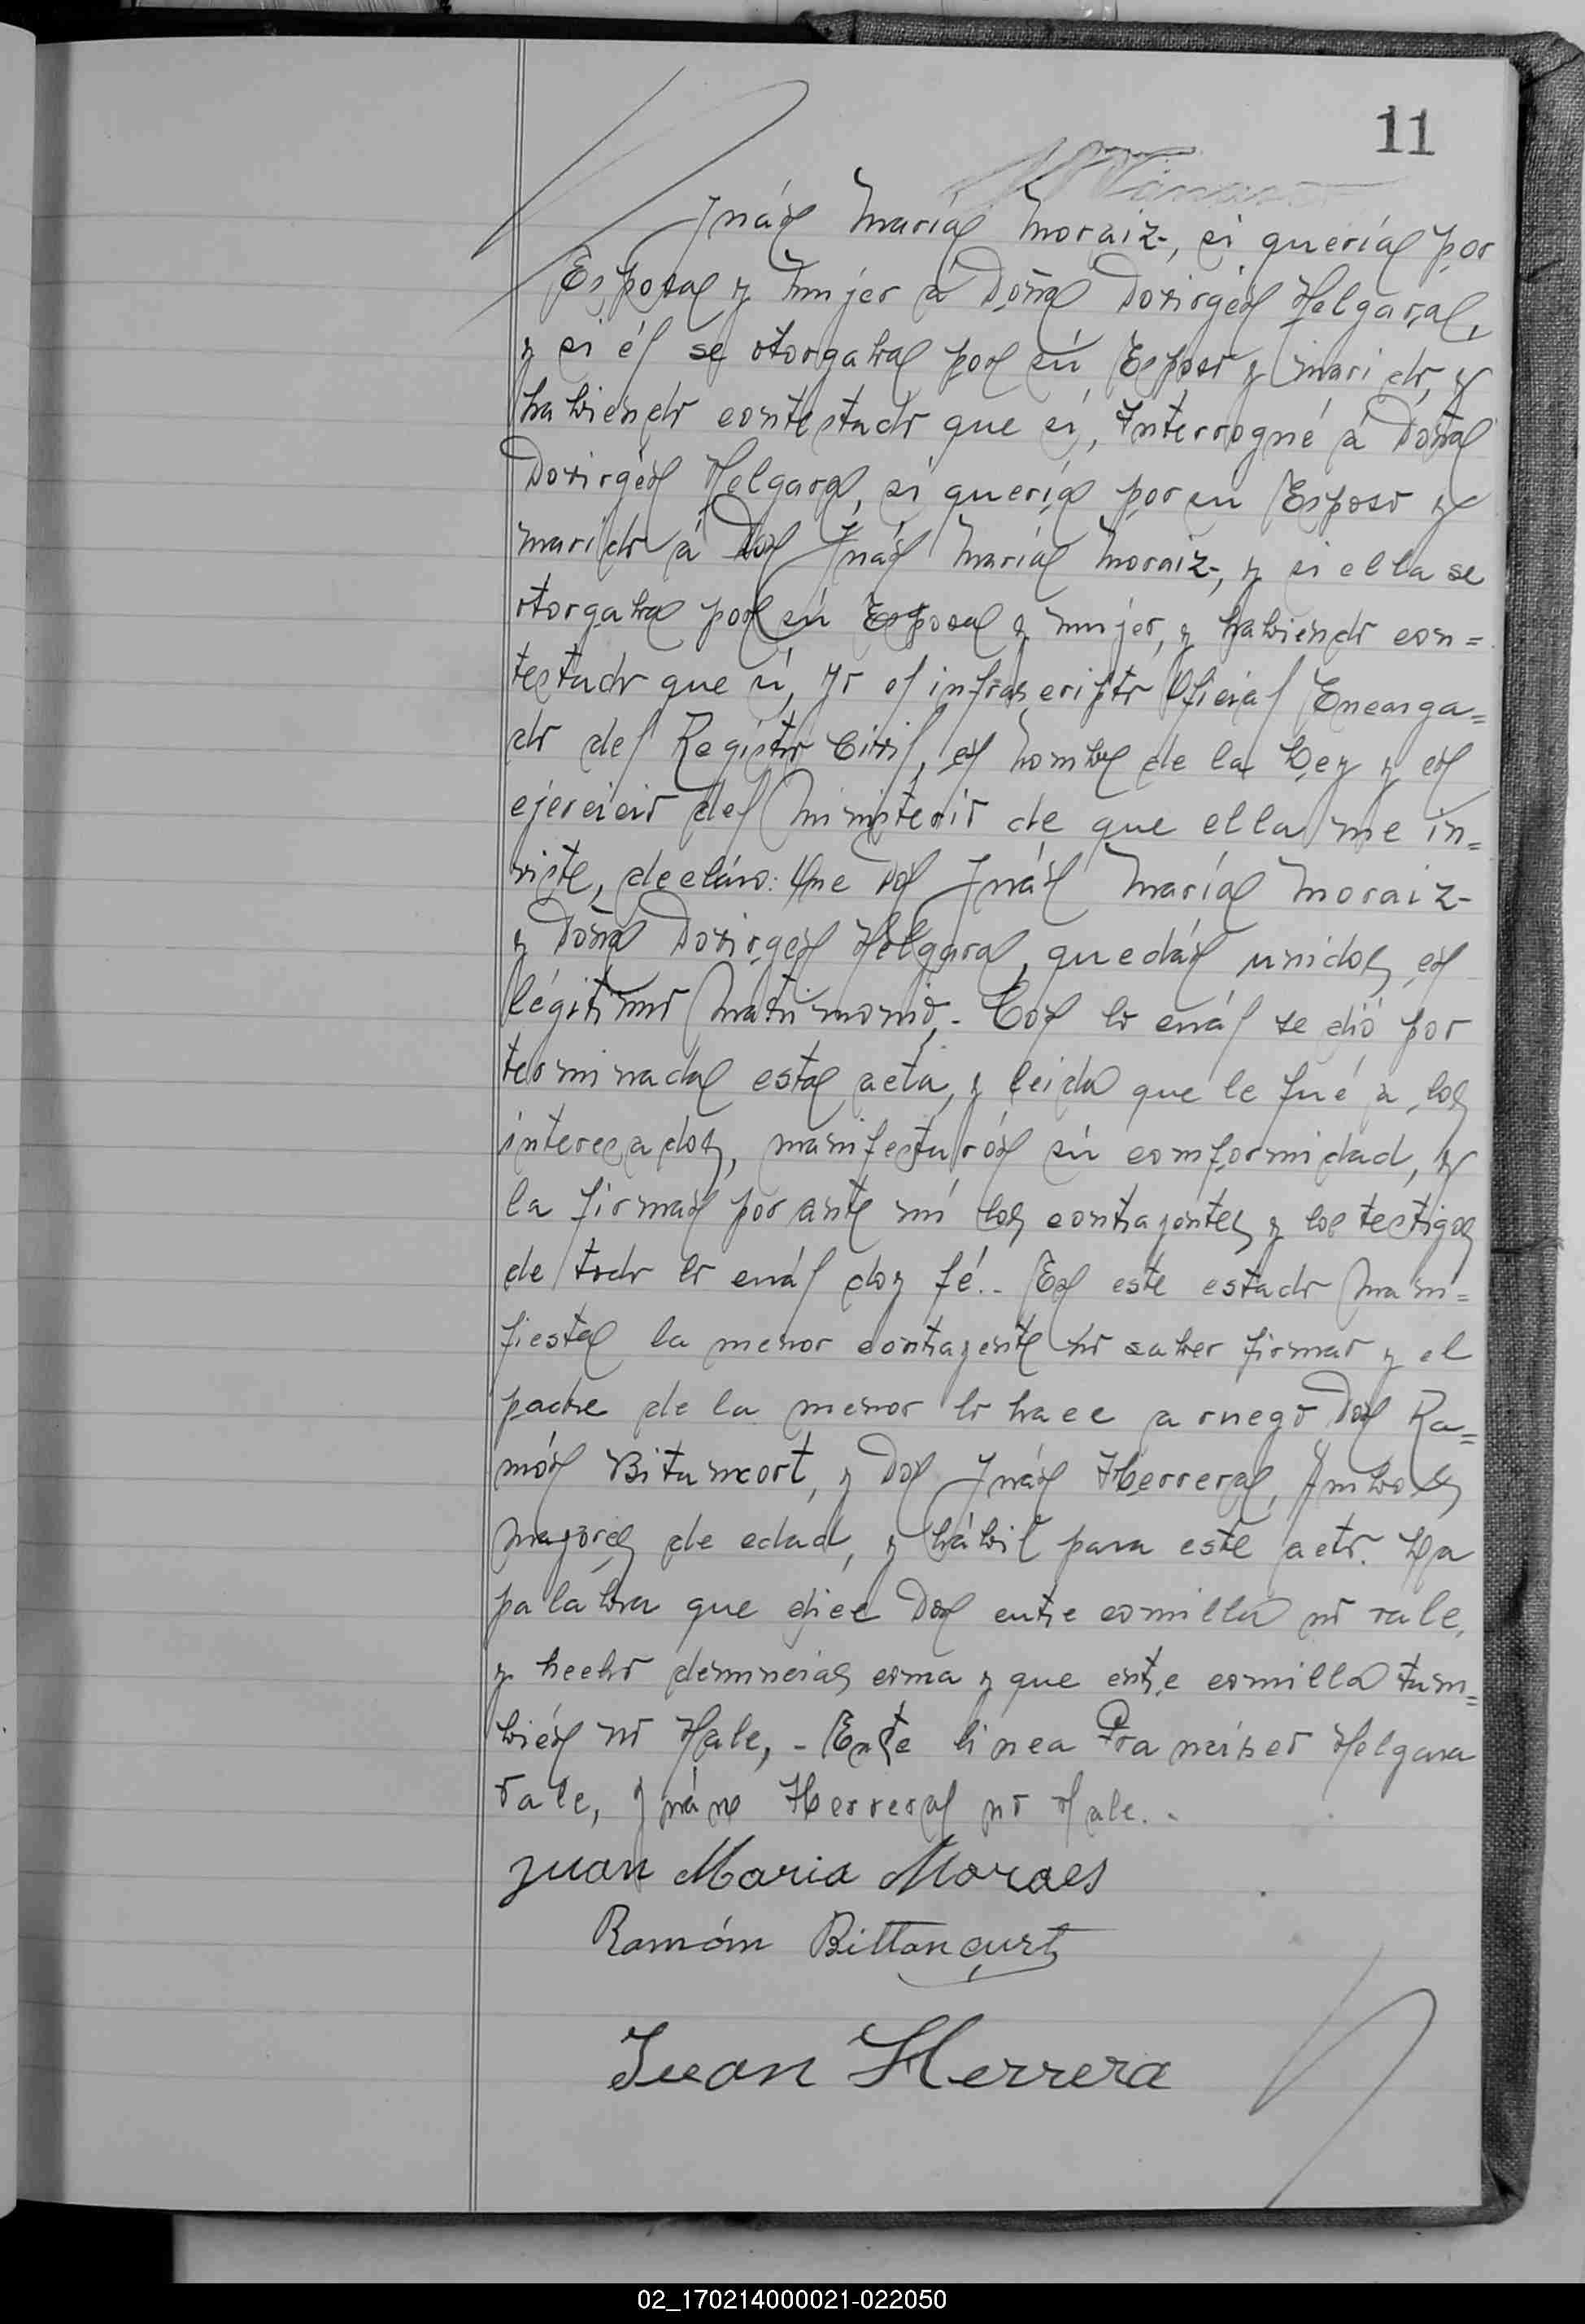 11
Juán María Moraiz-, si quería por
Esposa y mujer á Doña Doxirgén Helgara,
y si él se otorgaba por sú Esposo y marido, y
habiendo contestado que si, Interrogué á Doña
Doxirgén Helgara, si quería por su Esposo y
marido á Don Juán María Moraiz-, y si ella se
otorgaba por sú Esposa y mujer, y habiendo con=
testado que si, Yo el infrascripto Oficial Encarga=
do del Registro Civil, en nombre de la Ley y en
ejercicio del Ministerio de que ella me in=
viste, decláro: Que Don Juán María Moraiz-
y Doña Doxirgen Helgara, quedán unidos en
légitimo Matrimonio,- Con lo cuál se dió por
terminada esta acta, y leida que le fué a los
interesados, manifestarón sú comformidad, y
la firman por ante mí los contrayentes y los testigos
de todo lo cuál doy fé.- En este estado Mani=
fiesta la menor contrayente no saber firmar y el
padre de la menor lo hace a ruego Don Ra=
món Bitancort, y Don Juán Herrera, Ambos
mayores de edad, y hábil para este acto. La
palabra que dice Don entre comilla no vale,
y hecho denuncias coma y que entre comilla tam=
bién no Vale,- Ente linea Francisco Helgara
vale, Juáne Herrera no Vale.-
Juan Maria Moraes
Ramón Bittancurt
Juan Herrera
02_170214000021-022050